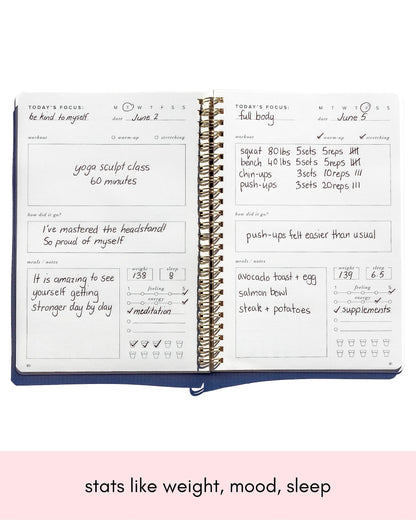 TODAY'S FOCUS:
M T W T F S S
be kind to myself
date June 2
workout
warm-up
stretching
yoga sculpt class
60 minutes
how did it go?
I've mastered the headstand!
So proud of myself
meals / notes
weight
138
sleep
8
It is amazing to see
yourself getting
stronger day by day
feeling
1
5
energy
meditation
TODAY'S FOCUS:
M T W T F S S
full body
date June 5
workout
warm-up
stretching
squat 80 lbs 5sets 5reps
bench 40 lbs 5sets 5reps
chin-ups 3sets 10reps
push-ups 3sets 20reps
how did it go?
push-ups felt easier than usual
meals / notes
weight
139
sleep
6.5
avocado toast + egg
salmon bowl
steak + potatoes
feeling
1
5
energy
supplements
stats like weight, mood, sleep